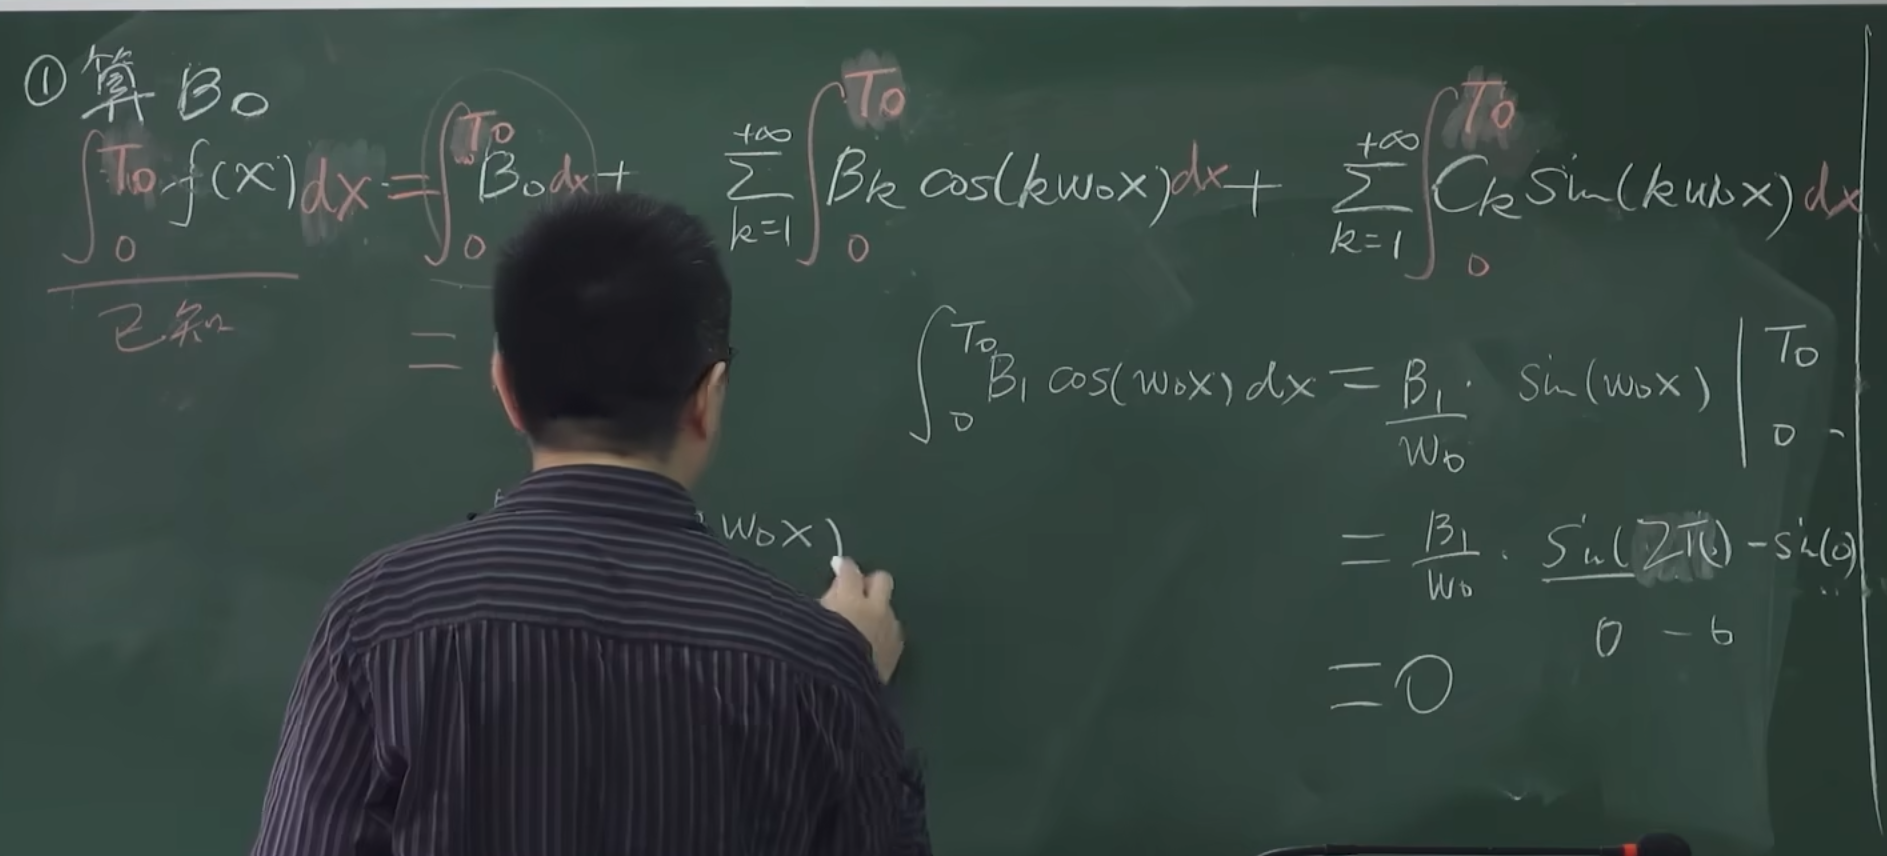 ① 算 B₀
∫₀^T₀ f(x) dx = ∫₀^T₀ B₀ dx + ∑_{k=1}^{+∞} ∫₀^T₀ B_k cos(kw₀x) dx + ∑_{k=1}^{+∞} ∫₀^T₀ C_k sin(kw₀x) dx
已知
=
∫₀^T₀ B₁ cos(w₀x) dx = B₁/w₀ · sin(w₀x) |₀^T₀
w₀x)
= B₁/w₀ · sin(2π) - sin(0)
0 - 0
= 0